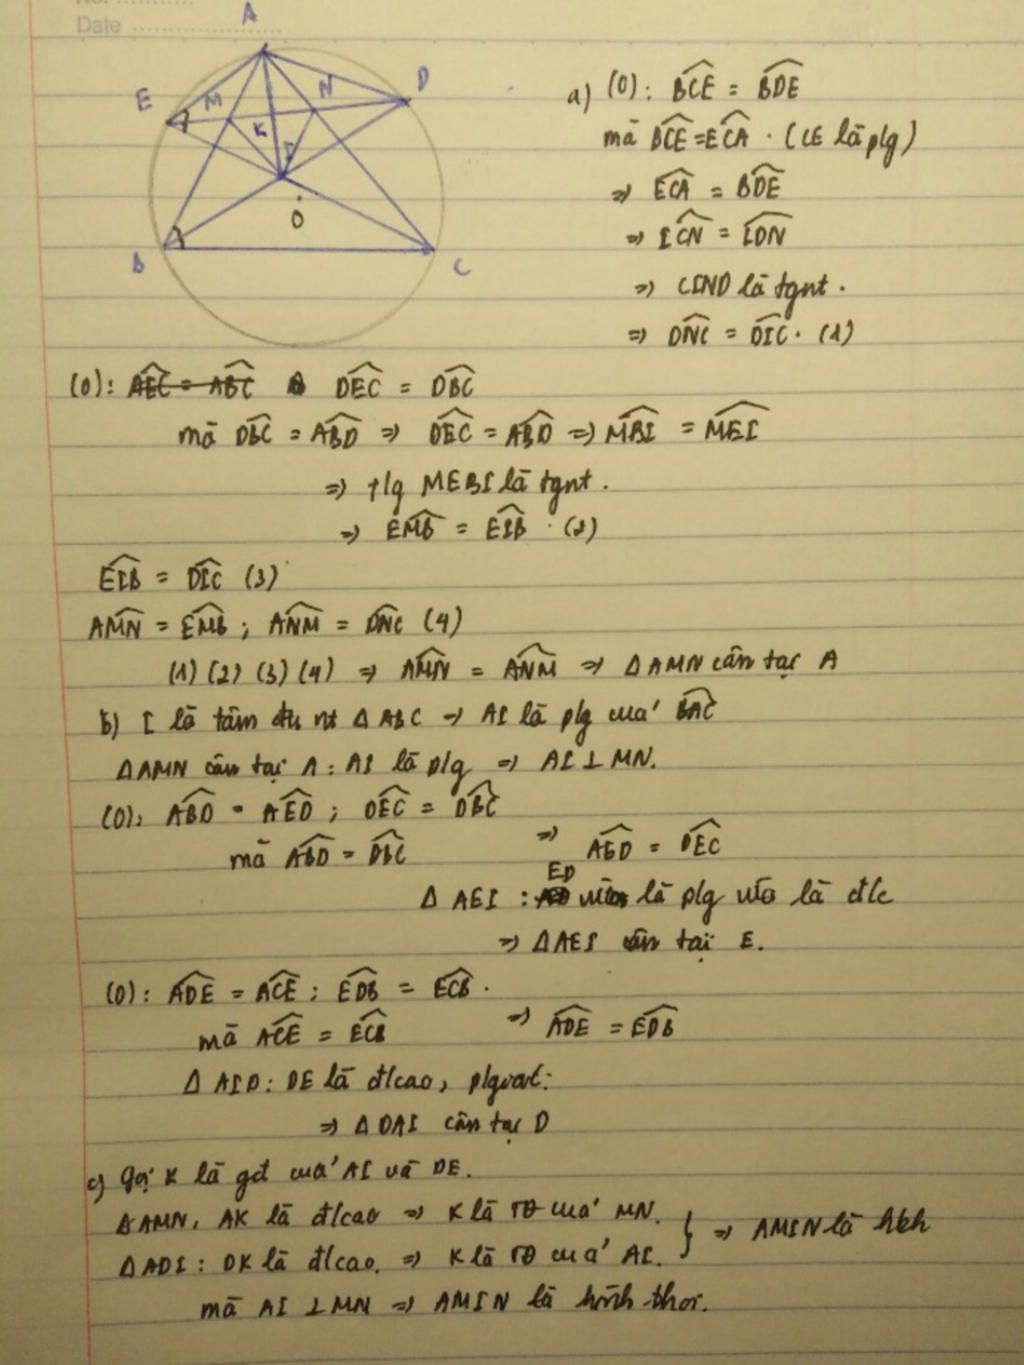 No. ..........
Date ....................
A
E
M
N
D
K
I
O
B
C
a) (O): BCE = BDE
mà BCE = ECA . (CE là p/g)
=> ECA = BDE
=> ICN = IDN
=> CIND là tgnt .
=> DNC = DIC . (1)
(O): AEC = ABC DEC = DBC
mà DBC = ABD => DEC = ABD => MBI = MEI
=> t/g MEBI là tgnt .
=> EMB = EIB . (2)
EIB = DIC (3)
AMN = EMB ; ANM = DNC (4)
(1) (2) (3) (4) => AMN = ANM => Δ AMN cân tại A
b) I là tâm đtr nt Δ ABC -> AI là p/g của BAC
Δ AMN cân tại A : AI là p/g => AI ⊥ MN.
(O): ABD = AED ; DEC = DBC
mà ABD = DBC => AED = DEC
Δ AEI : ED vừa là p/g vừa là đ/c
=> Δ AEI cân tại E.
(O) : ADE = ACE ; EDB = ECB .
mà ACE = ECB => ADE = EDB
Δ AID : DE là đ/cao, p/g
=> Δ DAI cân tại D
c) Gọi K là gđ của AI và DE.
Δ AMN, AK là đ/cao => K là TĐ của MN.
Δ ADI : DK là đ/cao. => K là TĐ của AI. } => AMIN là hbh
mà AI ⊥ MN => AMIN là hình thoi.